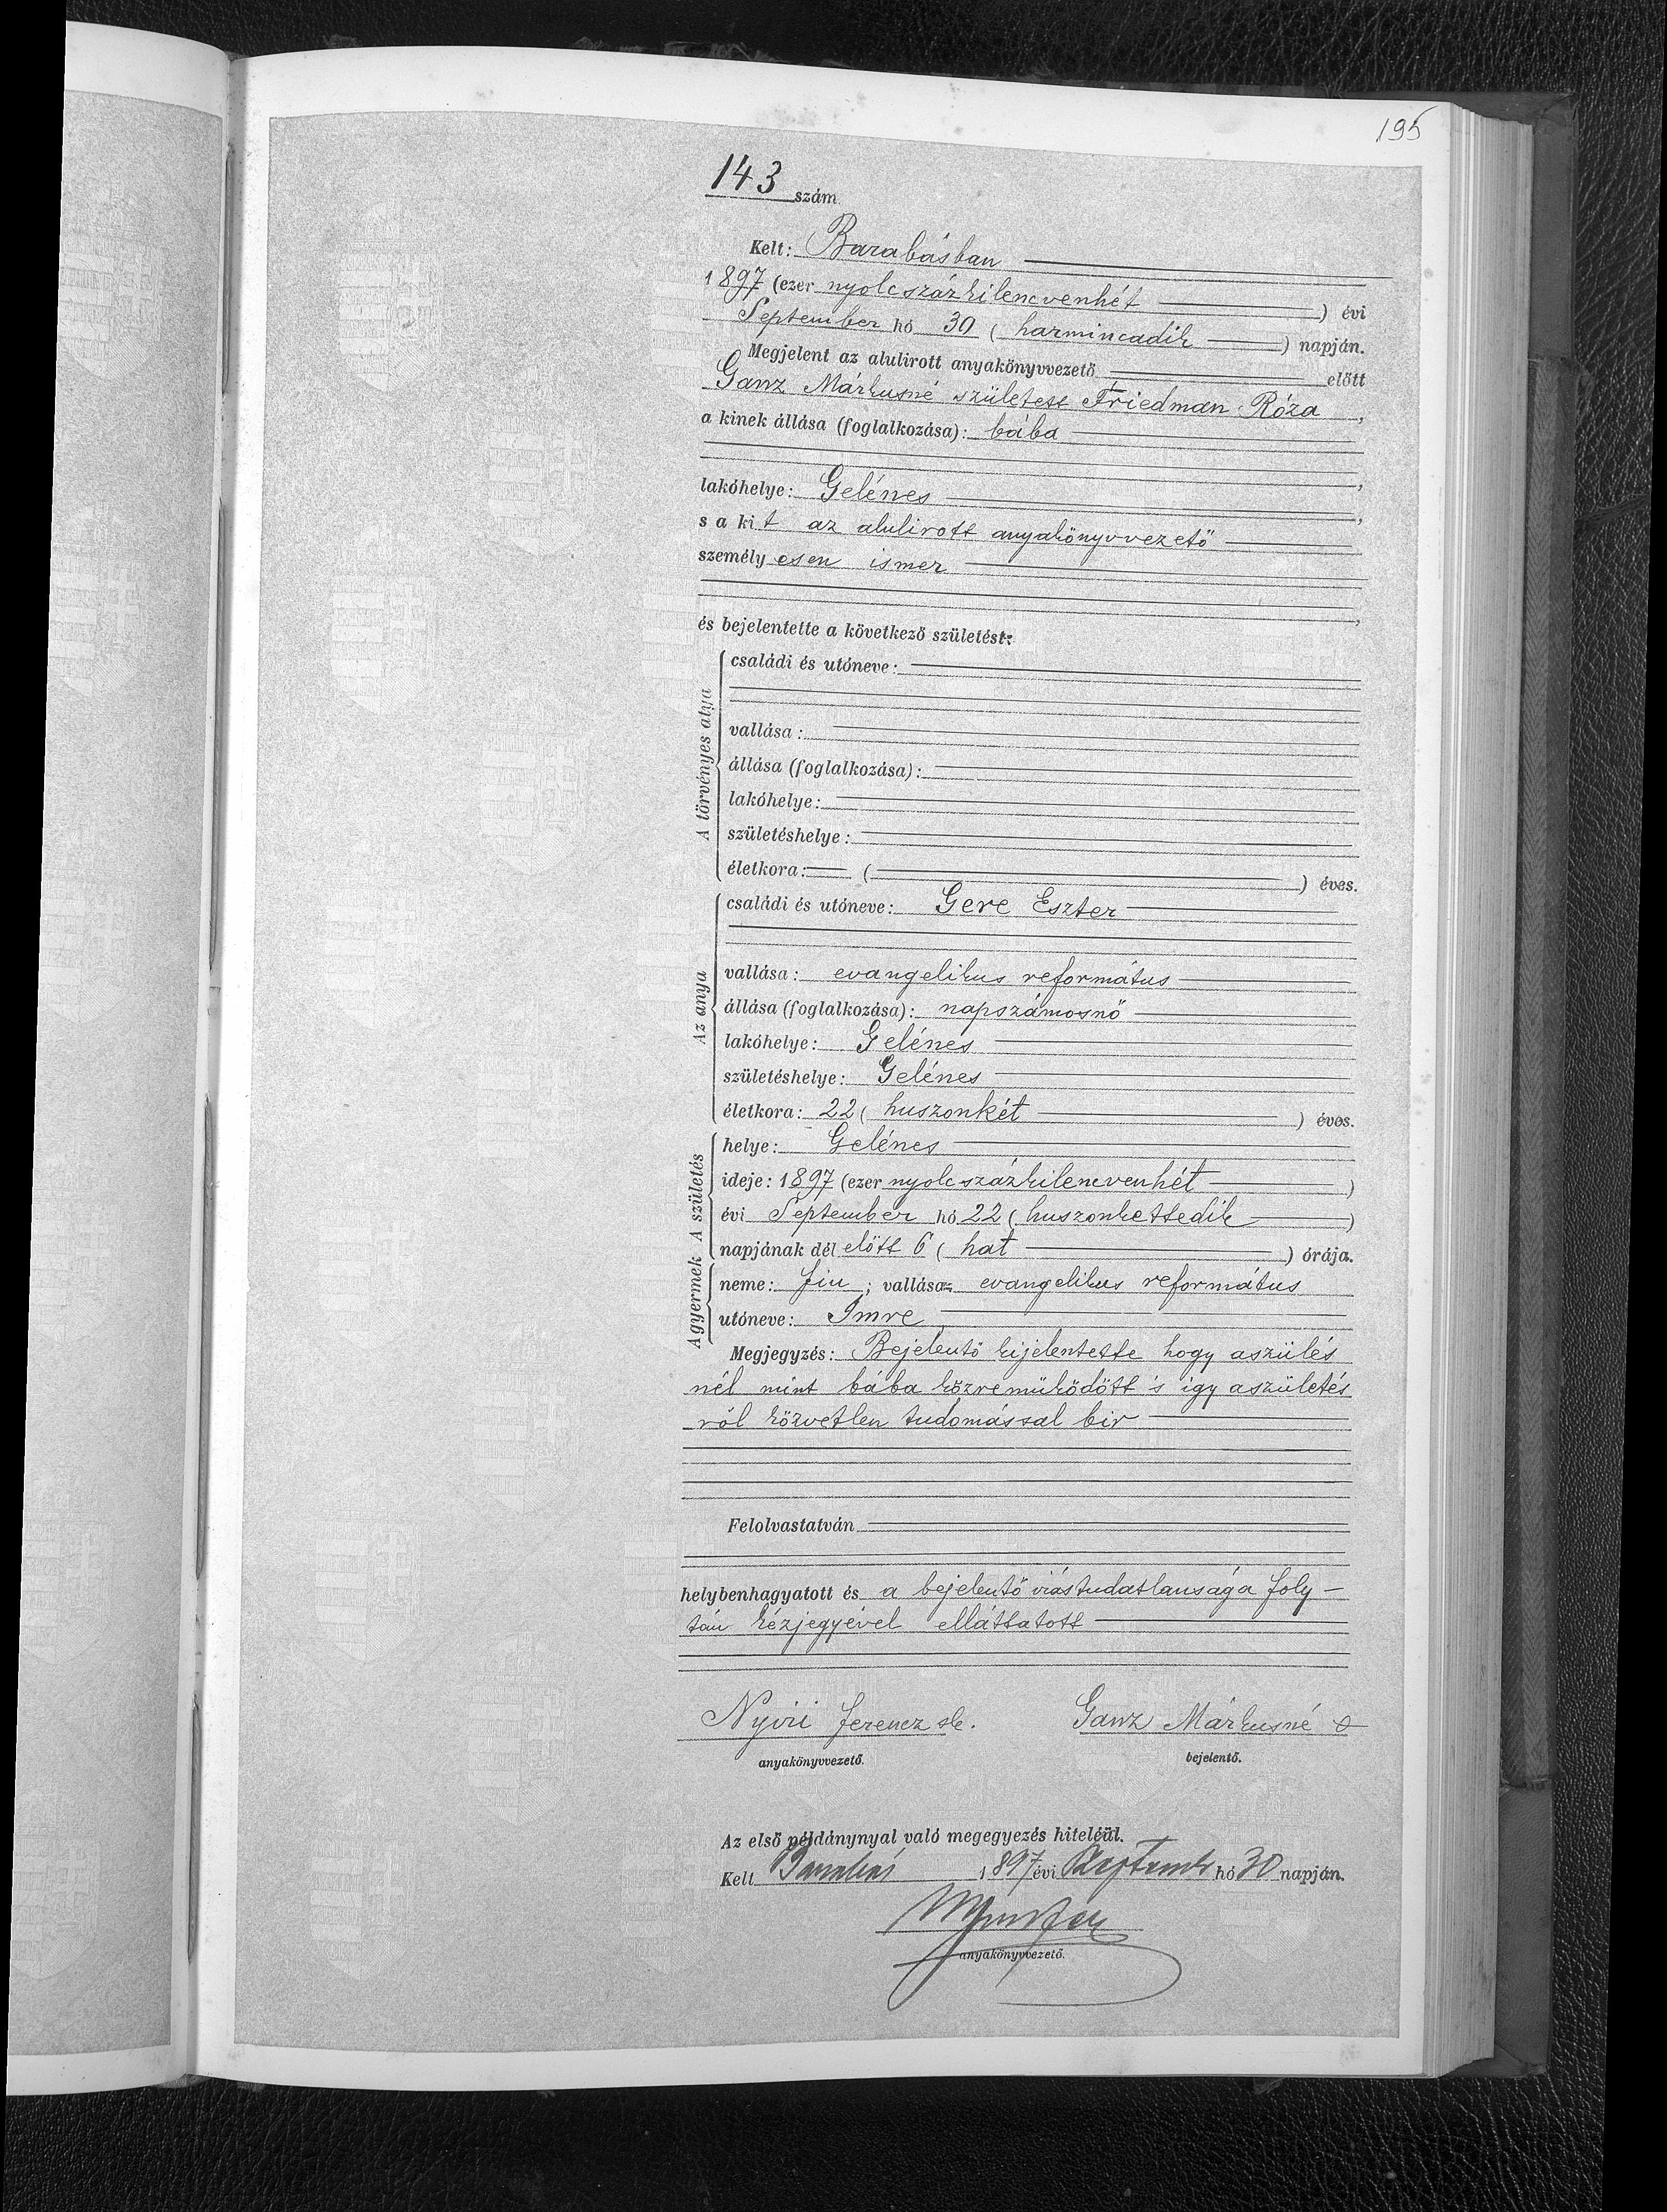 195
143 szám
Kelt: Barabásban
1897 (ezer nyolcszázkilencvenhét) évi
September hó 30 (harmincadik) napján.
Megjelent az alulirott anyakönyvvezető előtt
Ganz Márkusné született Friedman Róza,
a kinek állása (foglalkozása): bába
lakóhelye: Gelénes,
s a kit az alulirott anyakönyvvezető
személyesen ismer
és bejelentette a következő születést:
A törvényes atya
családi és utóneve:
vallása:
állása (foglalkozása):
lakóhelye:
születéshelye:
életkora: ( ) éves.
Az anya
családi és utóneve: Gere Eszter
vallása: evangelikus református
állása (foglalkozása): napszámosnő
lakóhelye: Gelénes
születéshelye: Gelénes
életkora: 22 (huszonkét) éves.
A születés
helye: Gelénes
ideje: 1897 (ezer nyolcszázkilencvenhét)
évi September hó 22 (huszonkettedik)
napjának dél előtt 6 (hat) órája.
A gyermek
neme: fiu; vallása: evangelikus református
utóneve: Imre
Megjegyzés: Bejelentő kijelentette hogy aszülés
nél mint bába közreműködött 's igy aszületés
ről közvetlen tudomással bir
Felolvastatván
helybenhagyatott és a bejelentő irástudatlansága foly-
tán kézjegyével elláttatott
Nyiri Ferencz sk. Ganz Márkusné
anyakönyvvezető. bejelentő.
Az első példánynyal való megegyezés hiteléül.
Kelt Barabás 1897 évi September hó 30 napján.
anyakönyvvezető.